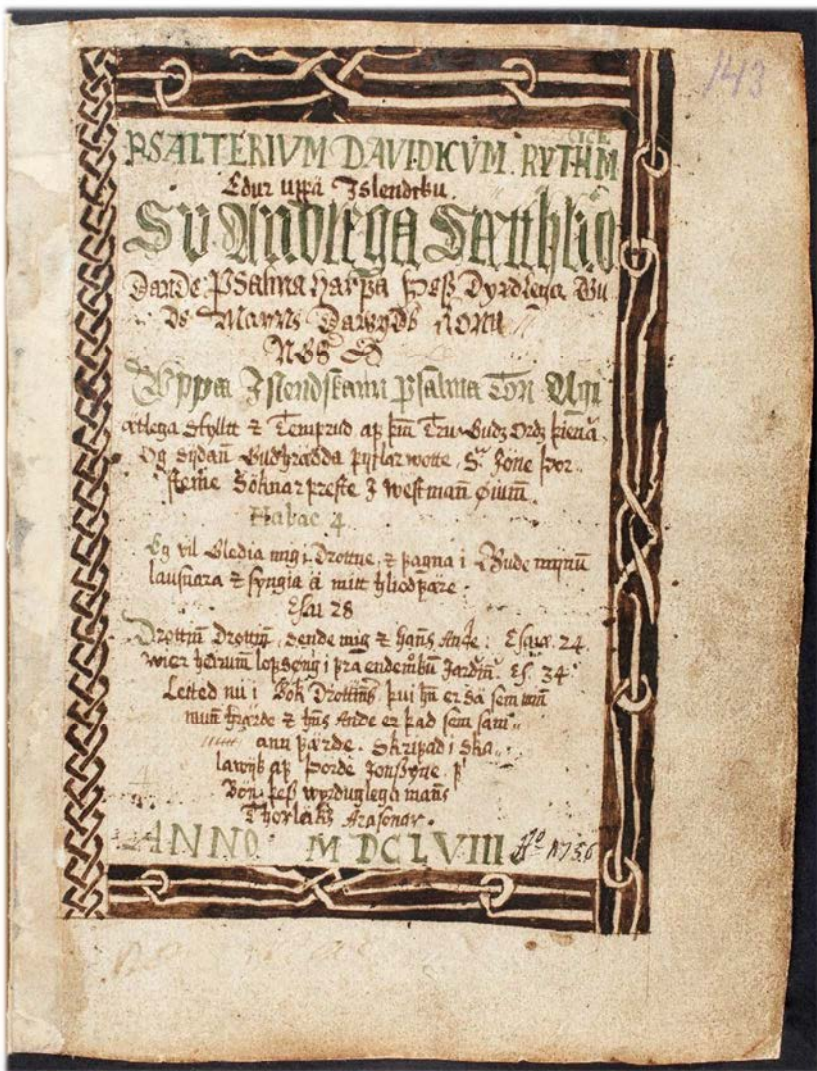 143
PSALTERIVM DAVIDICVM. RYTHM
ICE
Edur uppä Islendsku.
Su Andlega Sætthlio
dande Psalma harpa þess Dyrdlega Gu
ds Manns Dawyds konu
ngs
Uppaa Islendskann Psalma Tón
ätlega Stylltt z Temprud af þm̄ Tru Gudz Ordz þienā
Og sydan̄ Gudhrædda pijslarwotte, Sr. Jöne Þor
steine Söknar preste I westman̄ øium̄.
Habac 4
Eg vil Gledia mig i Drottne, z fagna i Gude mijnū
lausnara z syngia ä mitt hliodfäre.
Esai 28
Drottin̄ Drottin̄, sende mig z han̄s Ande: Esaiæ. 24.
wier heÿrum̄ lofsöng i frä endem̄kū Jardin̄r. Es. 34.
Leited nu i Bök Drottin̄s þui hn̄ er sä sem mn̄
mun̄ hrærde z hn̄s Ande er þad sem sam
anu färde. Skrifad i Ska
lawijk af Þorde Jonssyne. pr
Bön þess wyrduglega man̄s
Thorläks Arasonar.
ANNO M DCLVIII Ao 1756